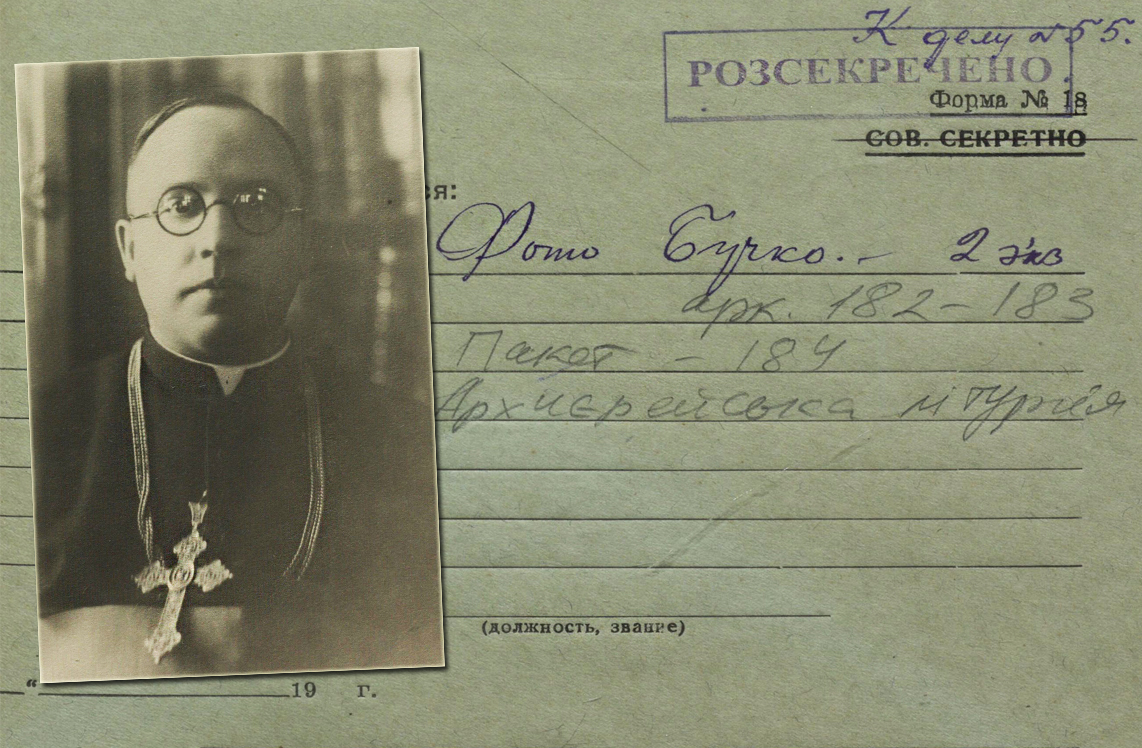 К делу № 55.
РОЗСЕКРЕЧЕНО
Форма № 18
СОВ. СЕКРЕТНО
ся:
Фото Бучко. – 2 экз
арк. 182 – 183
Пакет – 184
Архиєрейська літургія
(должность, звание)
“ 19 г.